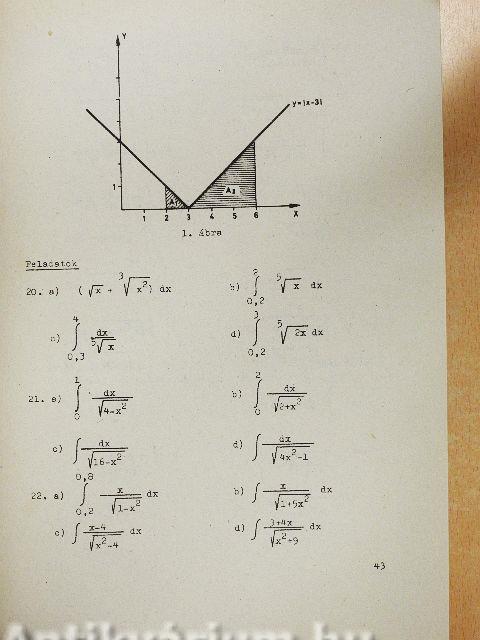 Y
y=|x-3|
1
A₁
A₂
1 2 3 4 5 6 X
1. ábra
Feladatok
20. a) (√x + ³√x²) dx b) ∫_{0,2}^{2} ⁵√x dx
c) ∫_{0,3}^{4} dx/⁵√x d) ∫_{0,2}^{3} ⁵√2x dx
21. a) ∫_{0}^{1} dx/√(4-x²) b) ∫_{0}^{2} dx/√(2+x²)
c) ∫ dx/√(16-x²) d) ∫ dx/√(4x²-1)
22. a) ∫_{0,2}^{0,8} x/√(1-x²) dx b) ∫ x/√(1+5x²) dx
c) ∫ (x-4)/√(x²-4) dx d) ∫ (3+4x)/√(x²+9) dx
43
Antikvárium.hu